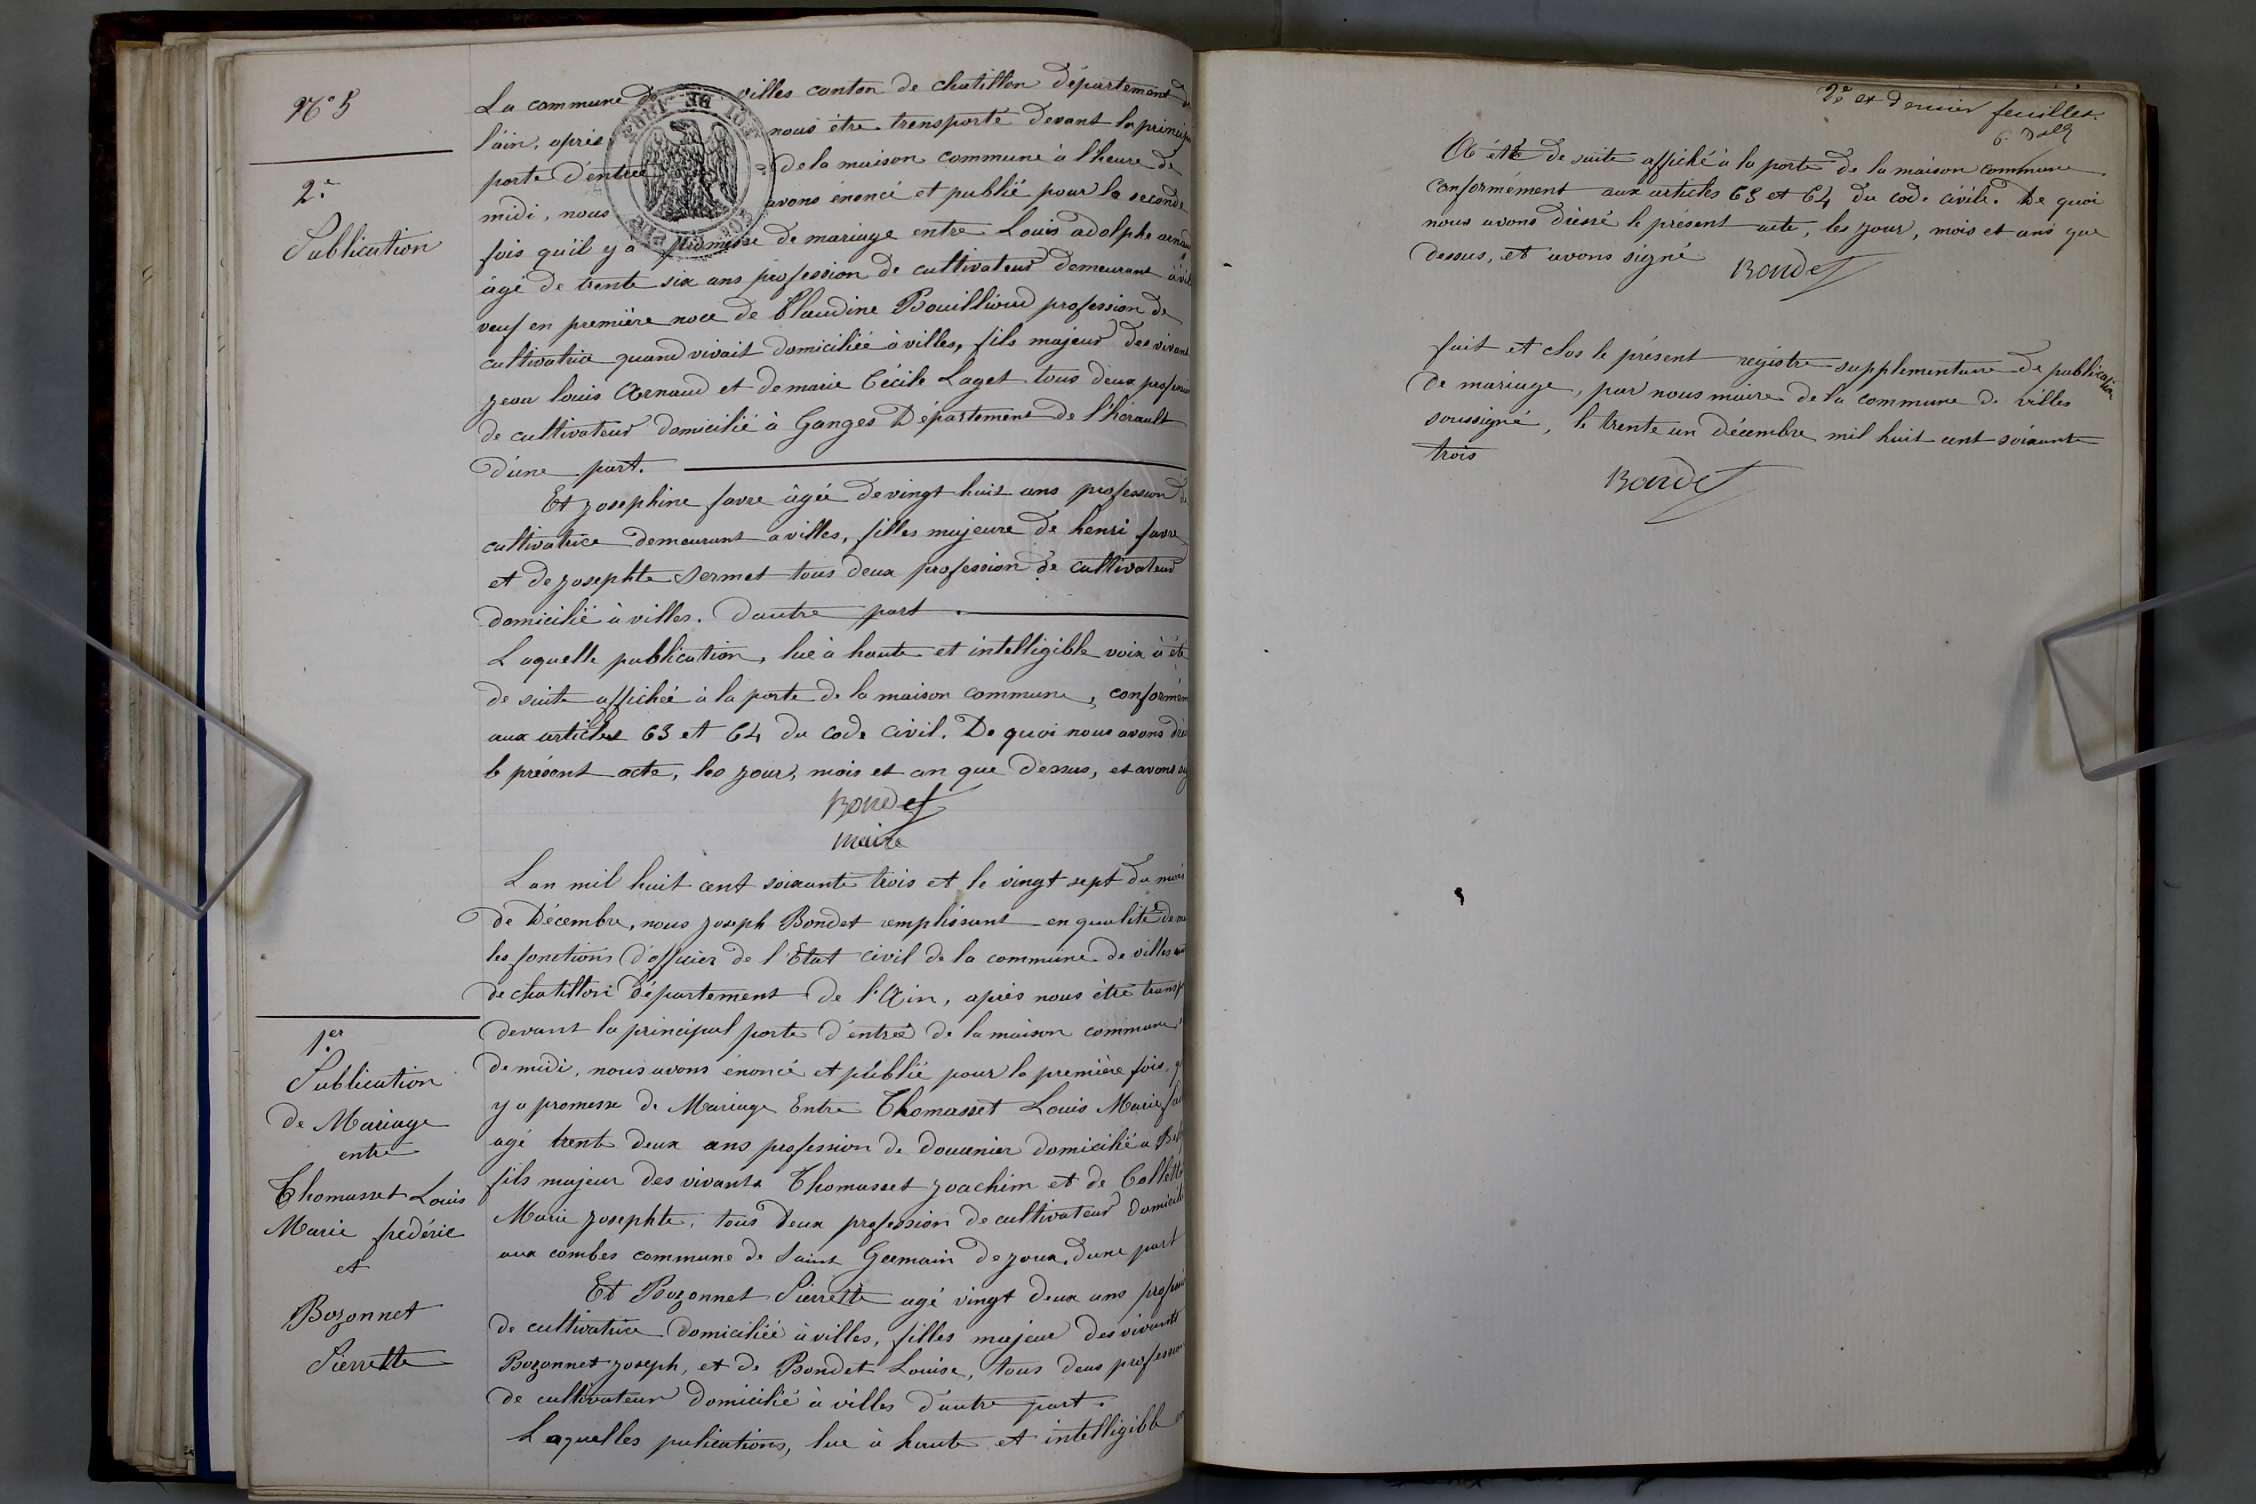 N° 5
2e
Publication
La commune de villes canton de chatillon département de
l'ain, après nous être transporté devant la principa
porte d'entrée de la maison commune à l'heure de
midi, nous avons énoncé et publié pour la seconde
fois qu'il y a promesse de mariage entre Louis adolphe arnaud
âgé de trente six ans profession de cultivateur demeurant à vil
veuf en première noce de Claudine Bouillioud profession de
cultivatrice quand vivait domiciliée à villes, fils majeur des vivant
jean louis Arnaud et de marie Cécile Laget tous deux profession
de cultivateur domicilié à Ganges Département de l'hérault
d'une part.
Et josephine favre âgée de vingt huit ans profession de
cultivatrice demeurant a villes, filles majeure de henri favre
et de josephte Sermet tous deux profession de cultivateur
domicilié à villes. d'autre part.
Laquelle publication, lue à haute et intelligible voix à été
de suite affichée à la porte de la maison commune, conformém
aux articles 63 et 64 du code civil. De quoi nous avons drés
le présent acte, les jour, mois et an que dessus, et avons sig
Bondet
maire
1er
Publication
de Mariage
entre
Thomasset Louis
Marie frédéric
et
Bozonnet
Pierrette
L'an mil huit cent soixante trois et le vingt sept du mois
de Décembre, nous joseph Bondet remplissant en qualité de m
les fonctions d'officier de l'Etat civil de la commune de villes can
de chatillon département de l'Ain, après nous être transp
devant la principal porte d'entrée de la maison commune
de midi, nous avons énoncé et publié pour la première fois, q
y a promesse de Mariage Entre Thomasset Louis Marie
agé trente deux ans profession de douanier domicilié a Bel
fils majeur des vivants Thomasset joachim et de Collette
Marie josephte, tous deux profession de cultivateur domicilié
aux combes commune de Saint Germain de joux. d'une part
Et Bozonnet Pierrette agé vingt deux ans profession
de cultivatrice domiciliée à villes, filles majeur des vivants
Bozonnet joseph, et de Bondet Louise, tous deux profession
de cultivateur domicilié à villes d'autre part.
Laquelles pulications, lue à haute et intelligible
2e et dernier feuillet.
A été de suite affiché à la porte de la maison commune
conformément aux articles 63 et 64 du code civile. De quoi
nous avons dressé le présent acte, les jour, mois et ans que
dessus, et avons signé Bondet
fait et clos le présent registre supplementaire de publication
de mariage, par nous maire de la commune de villes
soussigné, le trente un Décembre mil huit cent soixante
trois
Bondet